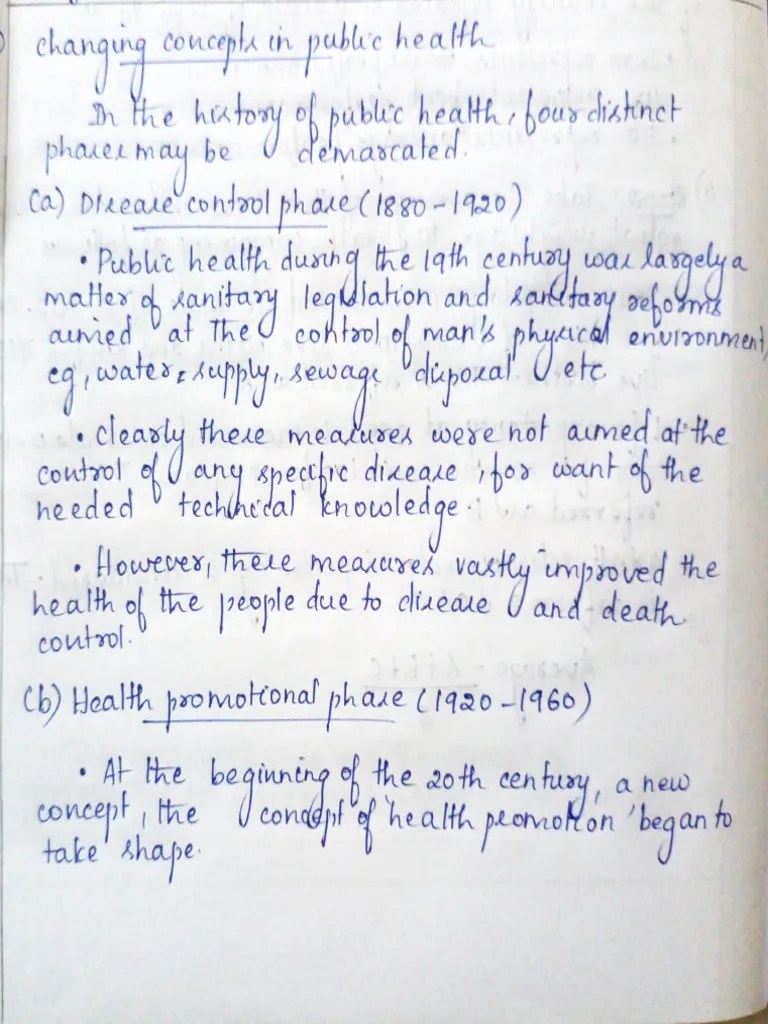 changing concepts in public health
In the history of public health, four distinct
phases may be demarcated.
(a) Disease control phase (1880-1920)
• Public health during the 19th century was largely a
matter of sanitary legislation and sanitary reforms
aimed at the control of man's physical environment,
eg, water, supply, sewage disposal etc
• Clearly these measures were not aimed at the
control of any specific disease, for want of the
needed technical knowledge.
• However, these measures vastly improved the
health of the people due to disease and death
control.
(b) Health promotional phase (1920-1960)
• At the beginning of the 20th century, a new
concept, the concept of 'health promotion' began to
take shape.